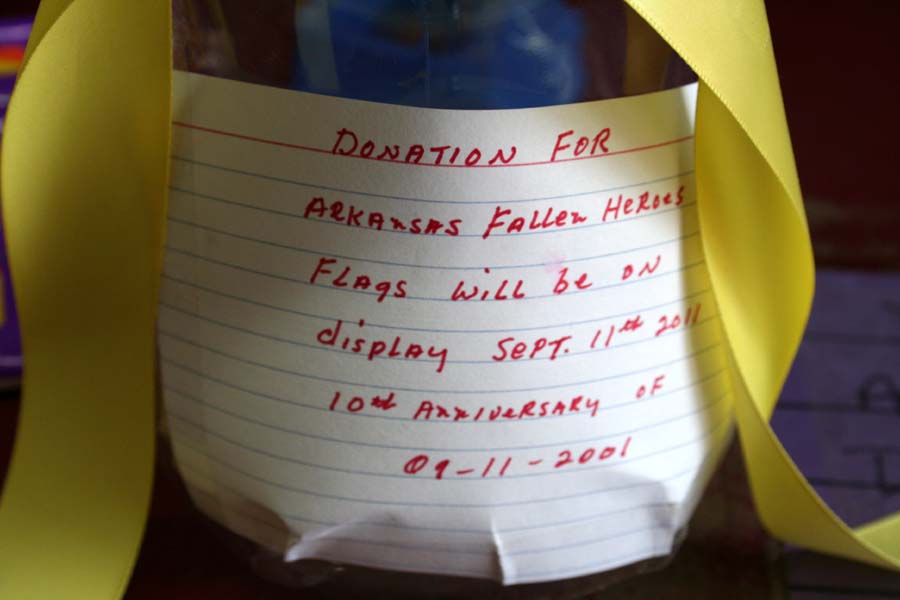 DONATION FOR
ARKANSAS FALLEN HEROES
FLAGS WILL be ON
display SEPT. 11th 2011
10th ANNIVERSARY OF
09-11-2001